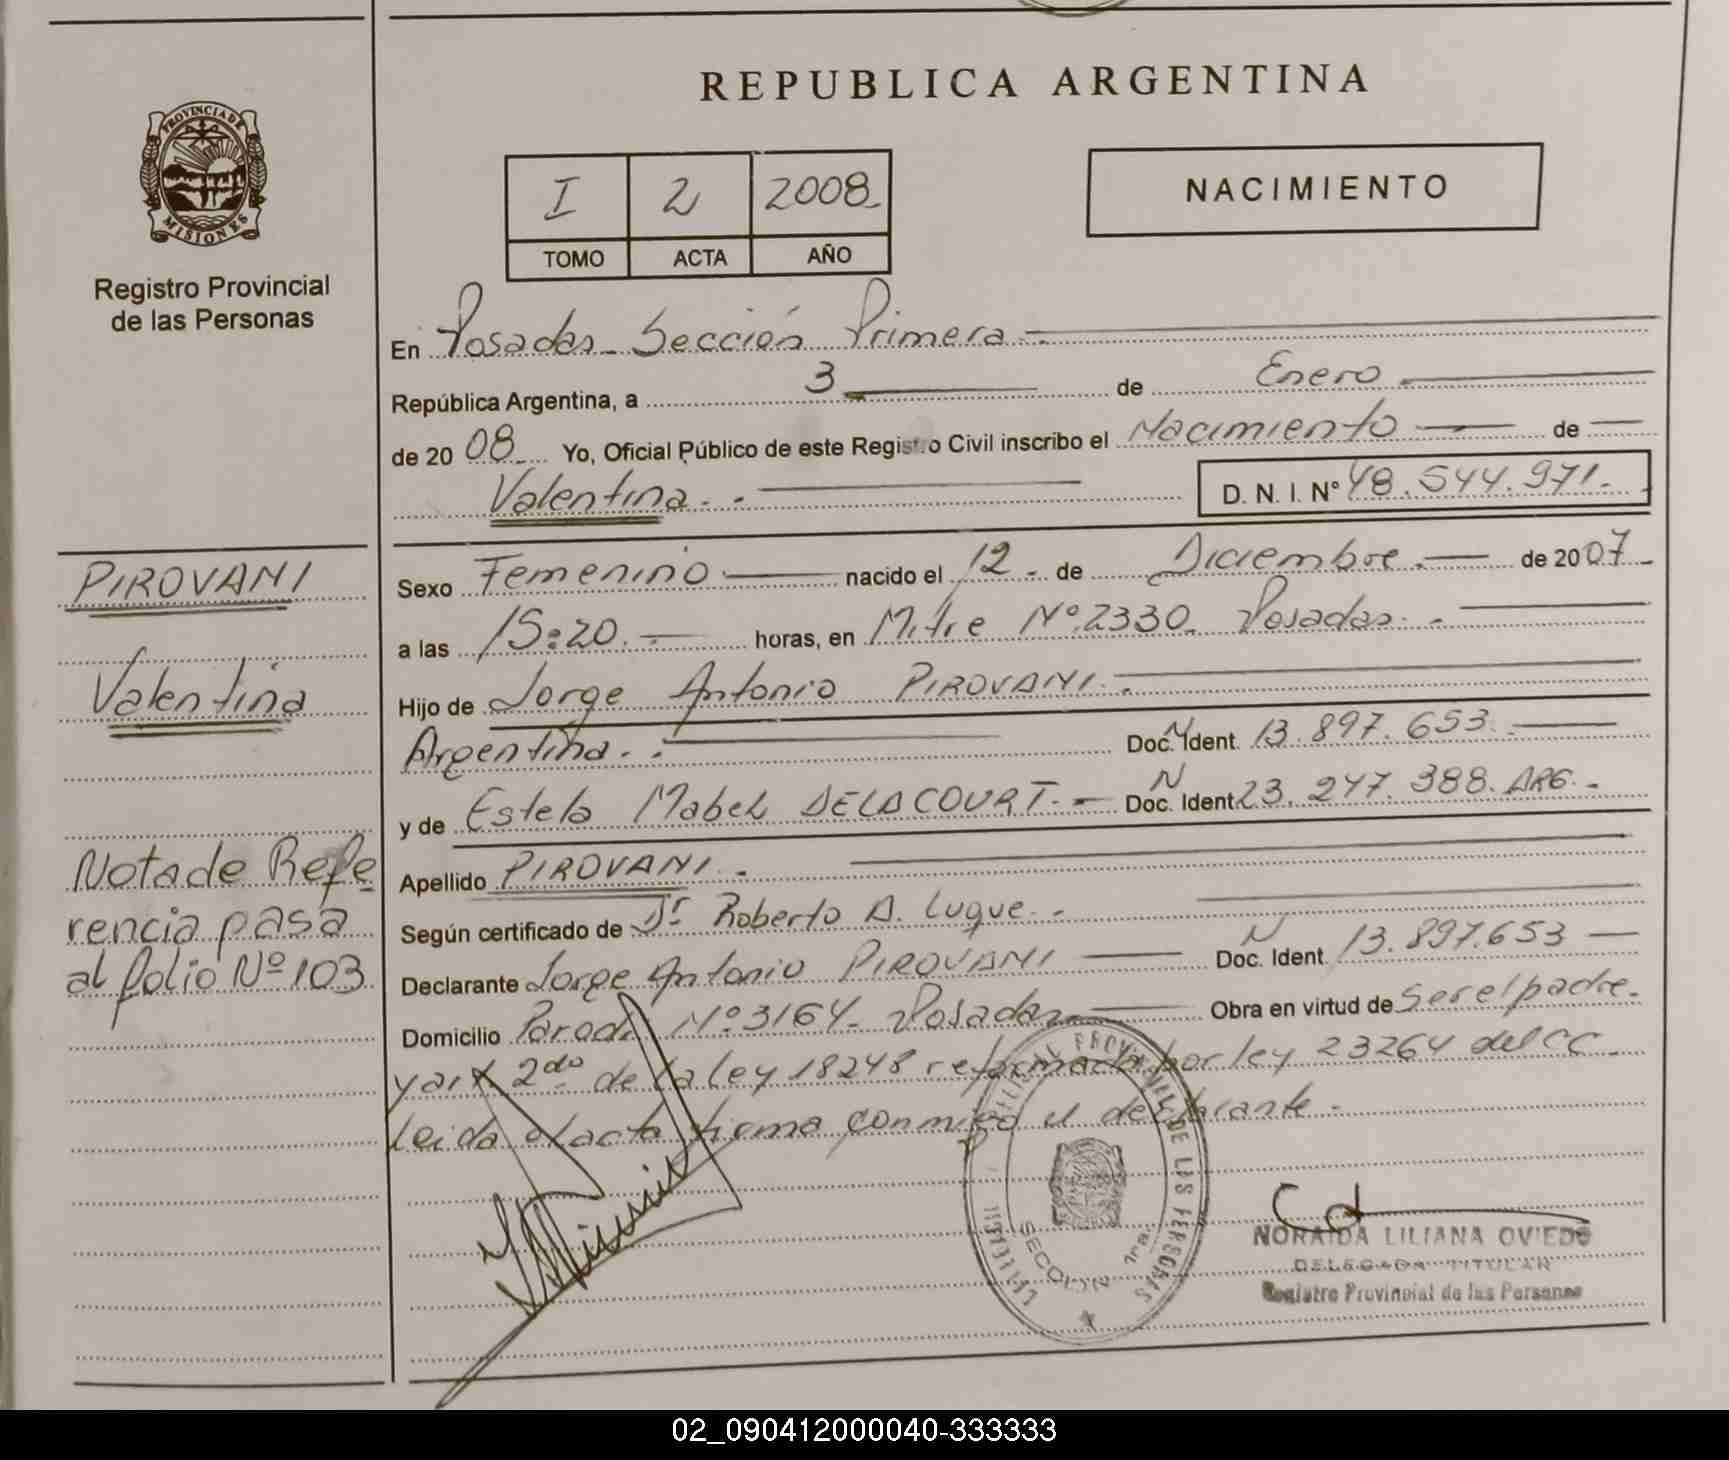 REPUBLICA ARGENTINA
PROVINCIA DE
MISIONES
Registro Provincial
de las Personas
I 2 2008
TOMO ACTA AÑO
NACIMIENTO
En Posadas Sección Primera
República Argentina, a 3 de Enero
de 2008 Yo, Oficial Público de este Registro Civil inscribo el Nacimiento de
Valentina.
D. N. I. Nº 48.544.971.
PIROVANI
Valentina
Nota de Refe
rencia pasa
al folio Nº 103
Sexo Femenino nacido el 12 de Diciembre de 2007
a las 15:20. horas, en Mitre Nº 2330 Posadas.
Hijo de Jorge Antonio PIROVANI.
Argentina. Doc. N Ident. 13.897.653.
y de Estela Mabel DELACOURT. Doc. N Ident. 23.247.388. ARG.
Apellido PIROVANI.
Según certificado de Dr Roberto A. Luque.
Declarante Jorge Antonio PIROVANI Doc. N Ident. 13.897.653
Domicilio Parodi Nº 3164 Posadas Obra en virtud de Ser el padre.
y art 2do de la ley 18248 reformada por ley 23264 del CC.
Leida el acta firma conmigo el declarante.
PROVINCIAL DE LAS PERSONAS
SECCION 1ra.
NORAIDA LILIANA OVIEDO
DELEGADA TITULAR
Registro Provincial de las Personas
02_090412000040-333333